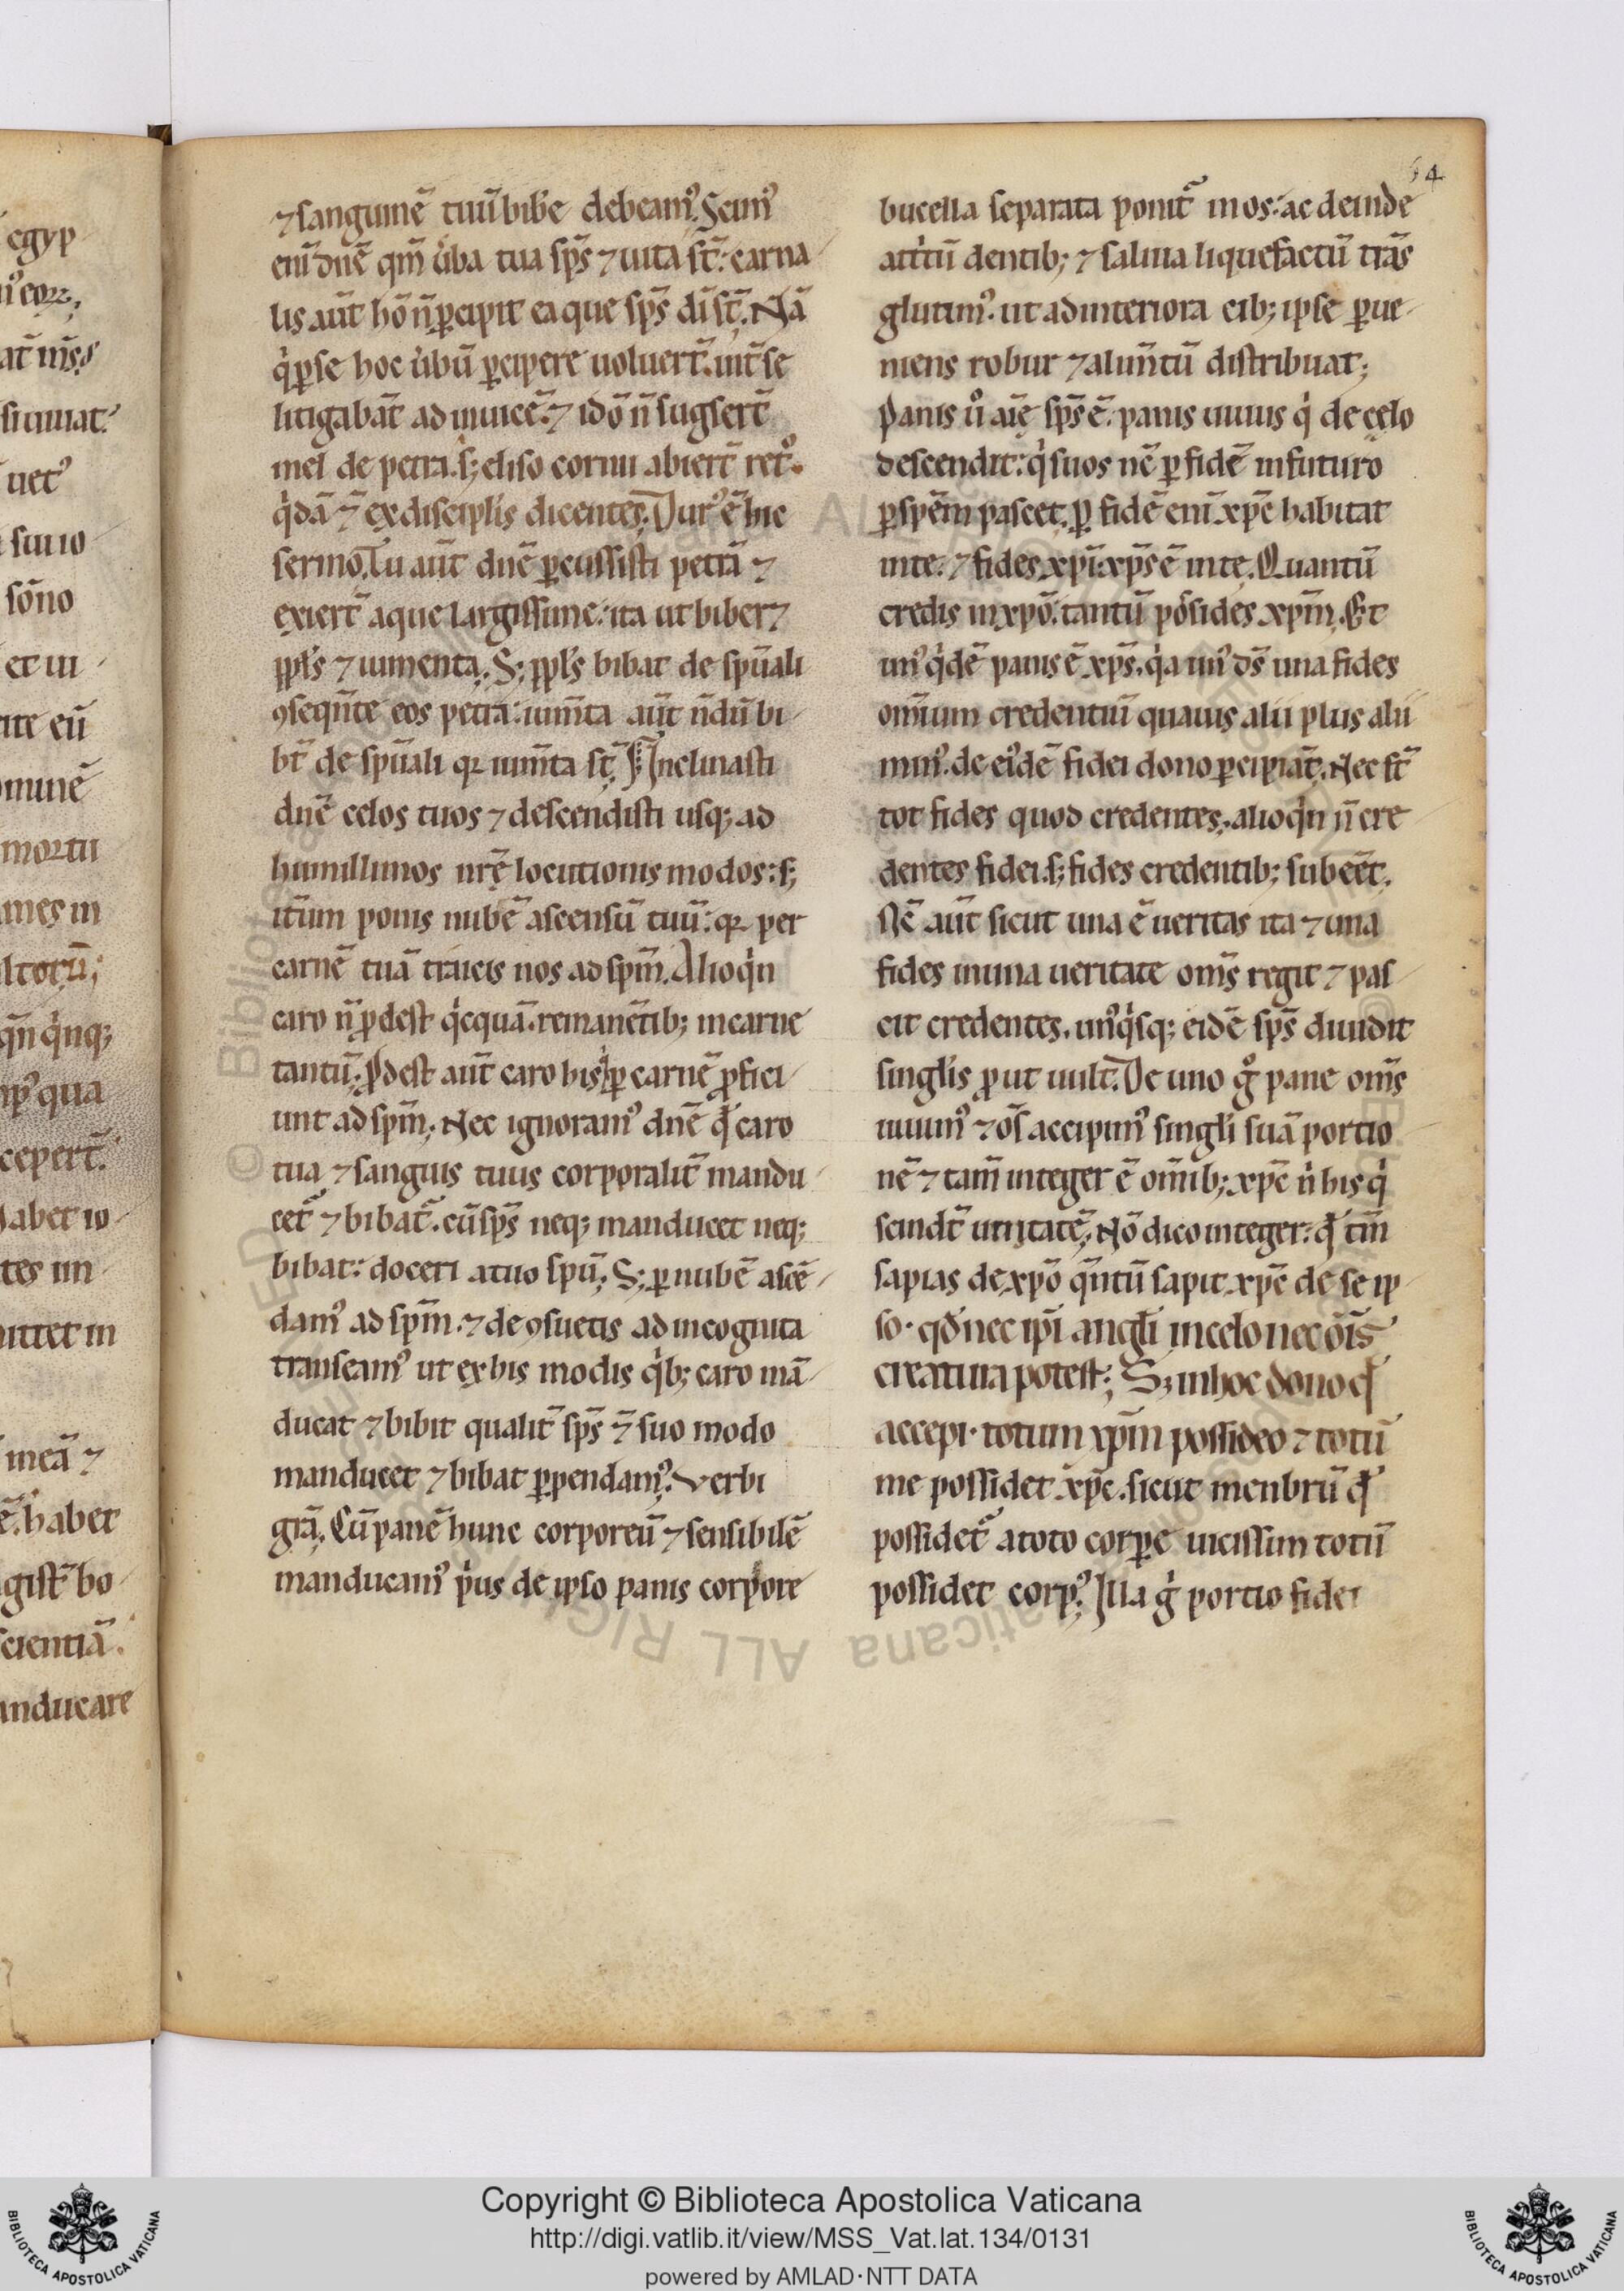 64
⁊ sanguinē tuū bib'e debeam⁹. Scim⁹
eni͞ dn͞e qm͞ u'ba tua sp͞s ⁊ uita st͞: carna
lis aūt hō n͞ ꝑcipit ea que sp͞s di st͞. Nā
qͥ ꝑ se hoc u'bū ꝑcipere uoluert͞. int͞ se
litigabāt ad inuicē. ⁊ idō n͞ sugsert͞
mel de petra. s; eliso cornu abiert͞ ret͛⁹.
qͥdā ⁊͞ ex discipl'is dicentes. Dur⁹ ē hic
sermo. Tu aūt dn͞e ꝑcussisti petrā ⁊
exiert͞ aque largissime: ita ut biber⁊
ppl's ⁊ iumenta. S; ppl's bibat de spūali
ꝯseqn͞te eos petra: ium͞ta aūt n͞dū bi
bt͞ de spūali qꝛ ium͞ta st͞. Inclinasti
dn͞e celos tuos ⁊ descendisti usq; ad
humillimos nr͞ę locutionis modos: s;
it͞um ponis nubē ascensū tuū: qꝛ per
carnē tuā traicis nos ad spm͞. Alioqͥn
caro n͞ ꝓdest qͥcquā. remanētib; in carne
tantū. Ꝓdest aūt caro his qͥ ꝑ carnē ꝓfici
unt ad spm͞. Nec ignoram⁹ dn͞e qđ caro
tua ⁊ sanguis tuus corporalit͞ mandu
cet͛ ⁊ bibat͛. cū sp͞s neq; manducet neq;
bibat: doceri a tuo spū. S; ꝑ nubē ascē
dam⁹ ad spm͞. ⁊ de ꝯsuetis ad incognita
transeam⁹ ut ex his modis qͥb; caro mā
ducat ⁊ bibit qualit͞ sp͞s ⁊͞ suo modo
manducet ⁊ bibat ꝑpendam⁹. Verbi
grā. Cū panē hunc corporeū ⁊ sensibilē
manducam⁹ pͥus de ipso panis corpore
bucella separata ponit͛ in os: ac deinde
attͥtū dentib; ⁊ saliua liquefactū trās
glutim⁹. ut ad interiora cib; ipse ꝑue
niens robur ⁊ alim͞tū distribuat;
Panis u͛o aīę sp͞s ē. panis uiuus qͥ de cęlo
descendit: qͥ suos nc͞ ꝑ fidē in futuro
ꝑ spēm pascet. ꝑ fidē eni͞ xp͞c habitat
in te. ⁊ fides xpi͞: xp͞s ē in te. Quantū
credis in xpō. tantū pos̄sides xpm͞. Et
un⁹ qͥdē panis ē xp͞s. qͥa un⁹ ds͞ una fides
om͞ium credentiū quauis alii plus alii
min⁹. de ei⁹dē fidei dono ꝑcipiāt. Nec st͞
tot fides quod credentes. alioqͥn n͞ cre
dentes fidei. s; fides credentib; subeēt.
Nc͞ aūt sicut una ē ueritas ita ⁊ una
fides in una ueritate om͞s regit ⁊ pas
cit credentes. un⁹qͥsq; eidē sp͞s diuidit
singl'is ꝓut uult. De uno gͦ pane om͞s
uiuim⁹ ⁊ os͞ accipim⁹ singl'i suā portio
nē ⁊ tam͞ integer ē om͞ib; xp͞c n͛ his qͥ
scindt͞ unitatē. Nō dico integer: qđ tm͞
sapias de xpō qn͞tū sapit xp͞c de se ip
so. qđ nec ipi͞ angl'i in celo nec ōis
creatura potest; S; in hoc dono qđ
accepi. totum xpm͞ possideo ⁊ totū
me possidet xp͞c. sicut menbrū qđ
possidet͛ a toto corꝑe uicissim totū
possidet corp⁹; Illa gͥ portio fidei
egyp
n⁹ eoꝝ;
sinuat͛
uet⁹
suu io
sōno
et ui
ite eū
munē
mortu
mes in
qn͞ qͥnq;
qua
cepert͞.
abet io
tes im
ittet in
meā ⁊
ē. habet
gist͞ bo
scientiā.
nducare
Copyright © Biblioteca Apostolica Vaticana
http://digi.vatlib.it/view/MSS_Vat.lat.134/0131
powered by AMLAD·NTT DATA
BIBLIOTECA APOSTOLICA VATICANA
BIBLIOTECA APOSTOLICA VATICANA